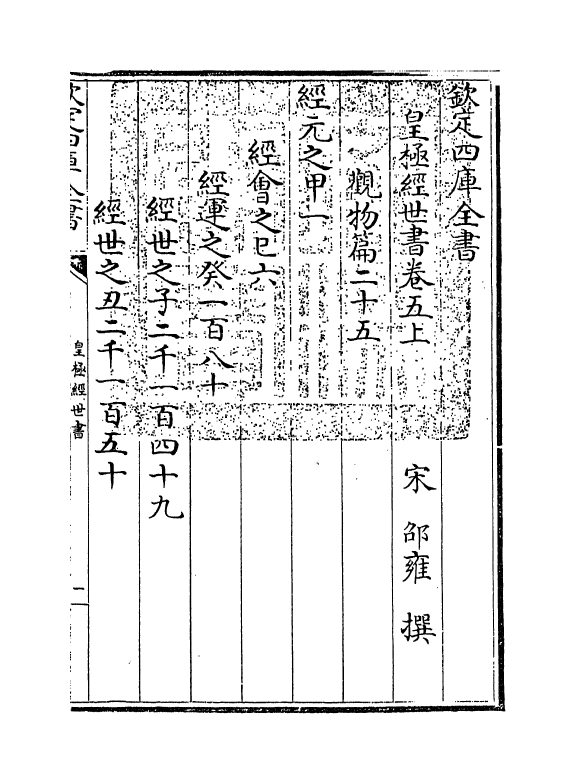 欽定四庫全書
皇極經世書卷五上　　　宋　邵雍　撰
觀物篇二十五
經元之甲一
經會之巳六
經運之癸一百八十
經世之子二千一百四十九
經世之丑二千一百五十
欽定四庫全書
皇極經世書
一